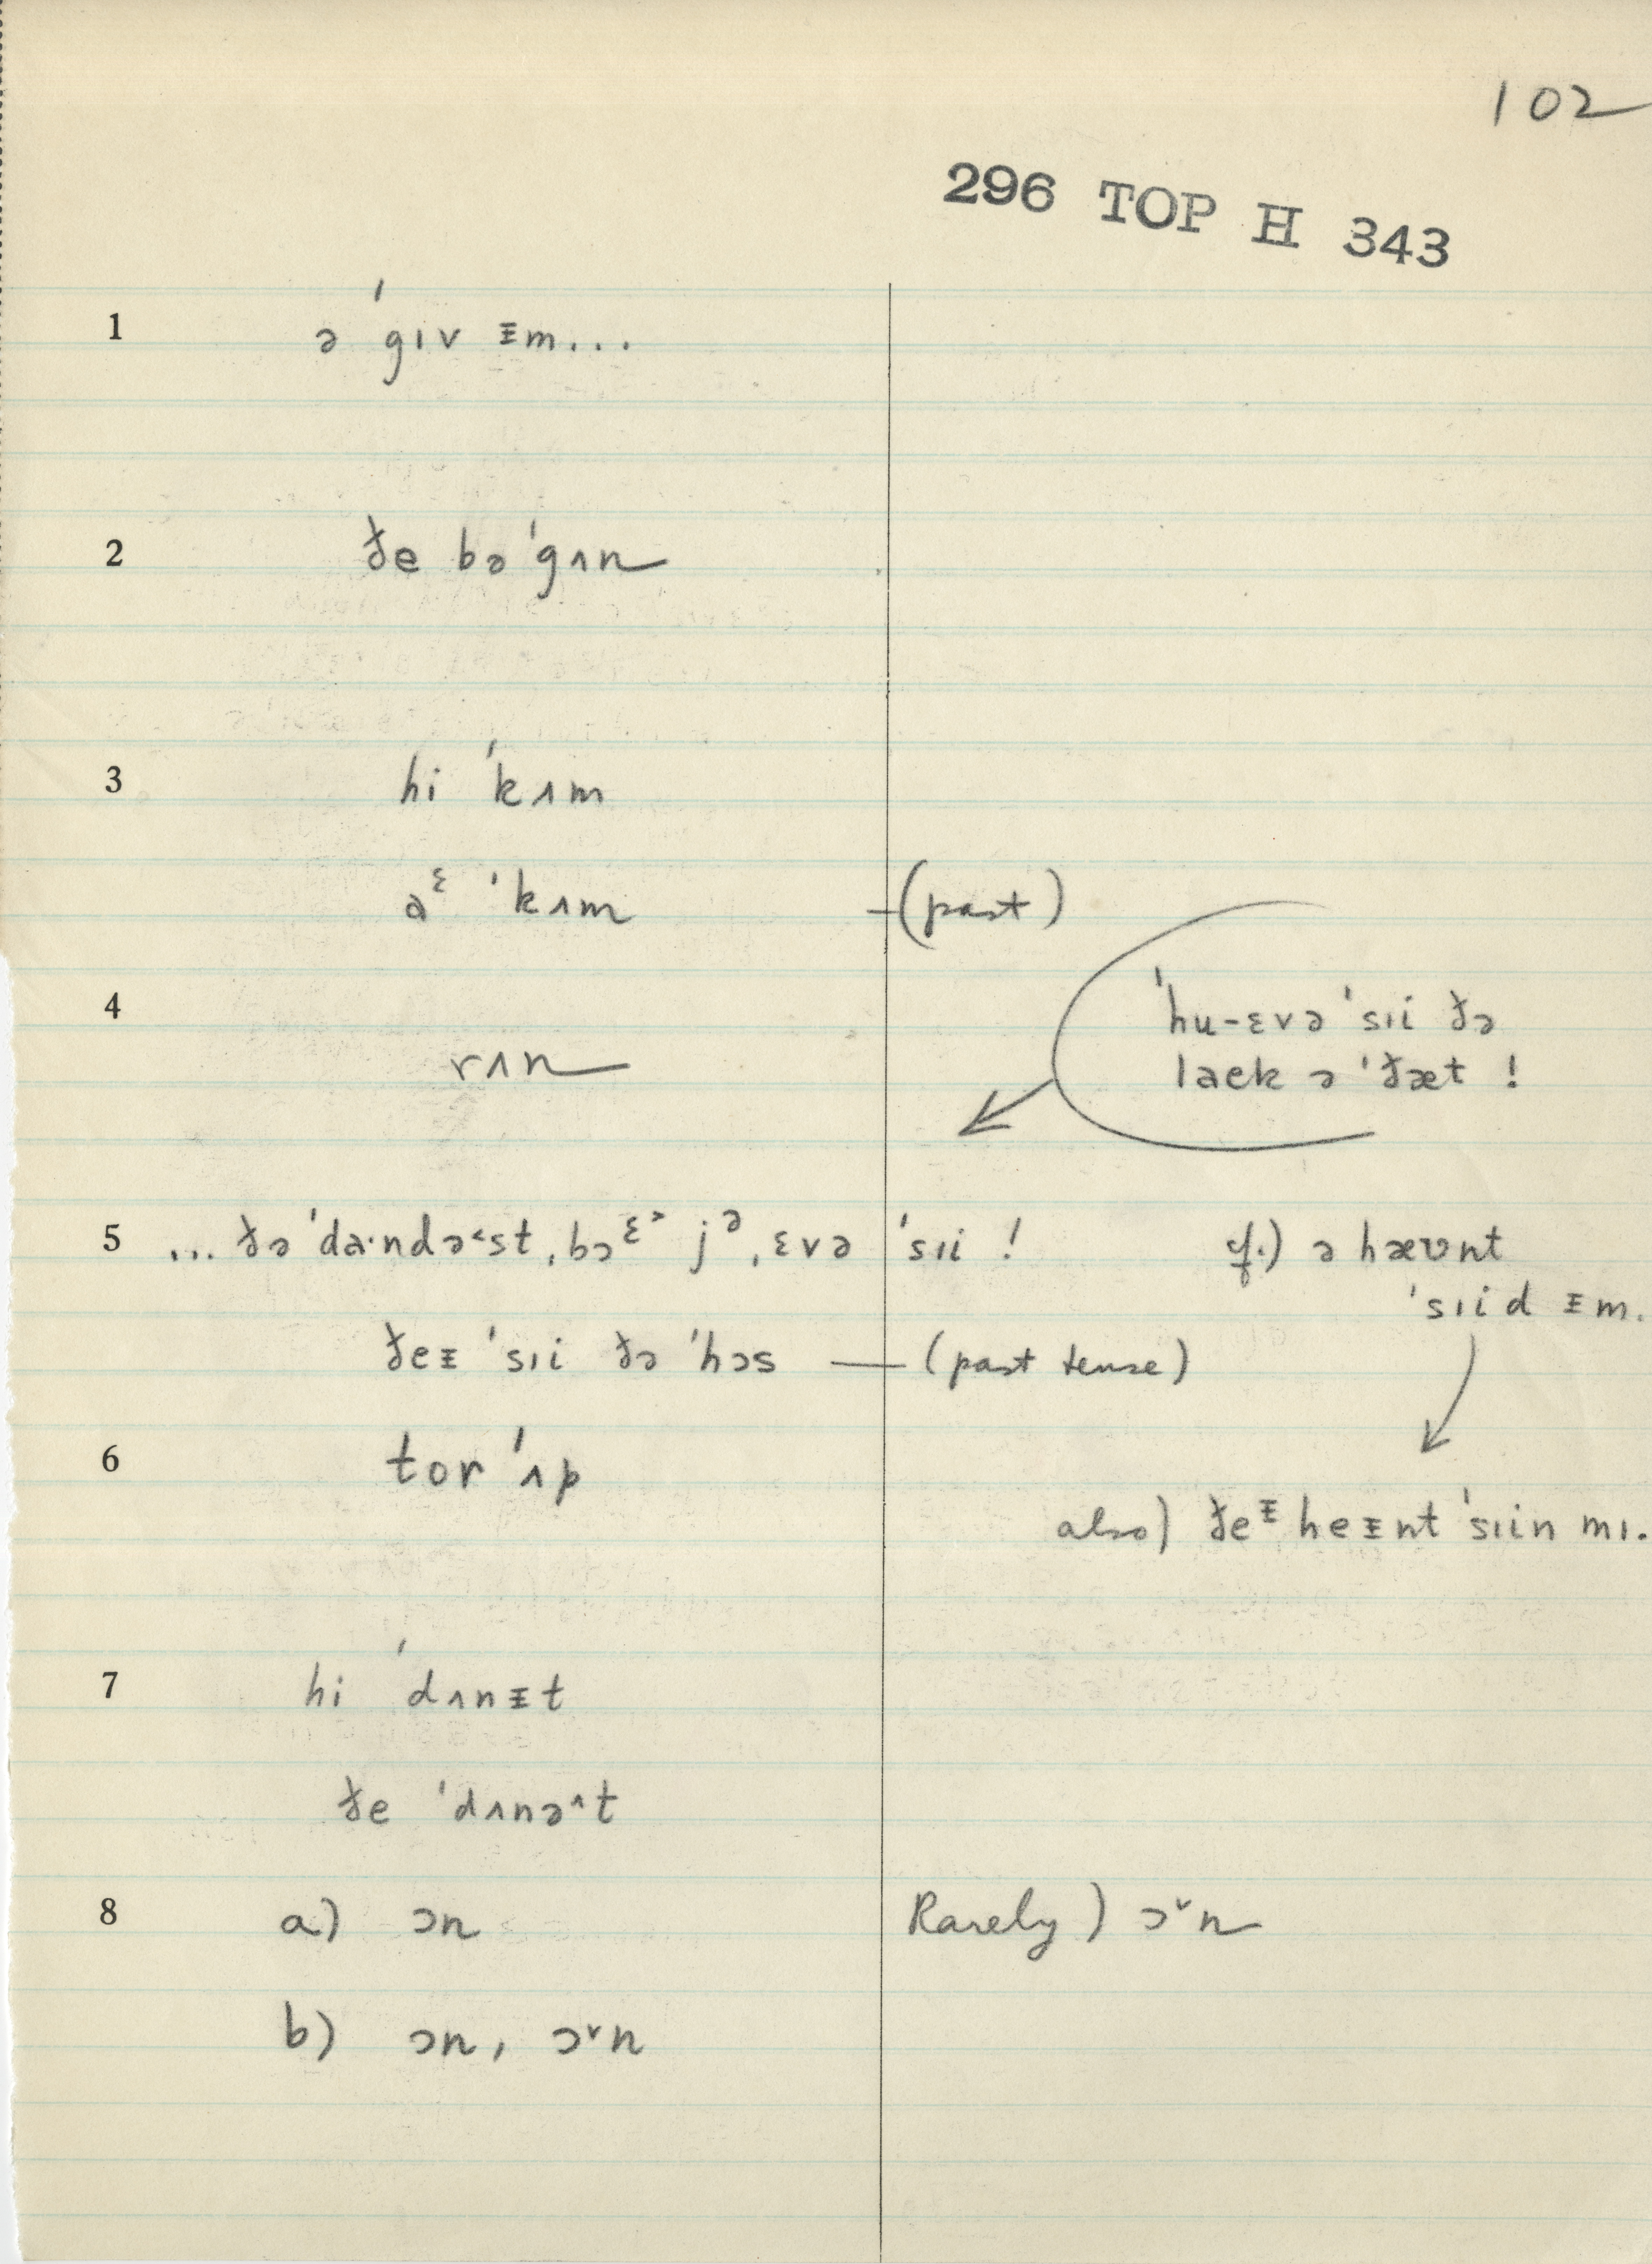 102
296 TOP H 343
1 ə ˈgɪv ᵻm...
2 ðe bəˈgʌn
3 hi ˈkʌm
aᵋ ˈkʌm —(past)
4 rʌn
ˈhu-ɛvə ˈsɪi ðə
laek ə ˈðæt !
5 ... ðə ˈdɑ·ndə˂st, bɔᵋ˃ jᵊ, ɛvə ˈsɪi !
cf.) ə hæʊnt
ˈsɪid ᵻm.
ðeᵻ ˈsɪi ðə ˈhɔs — (past tense)
6 tor ˈʌp
also) ðeᵻ heᵻnt ˈsɪin mɪ.
7 hi ˈdʌnᵻt
ðe ˈdʌnə˄t
8 a) ɔn Rarely) ɔ˅n
b) ɔn, ɔ˅n